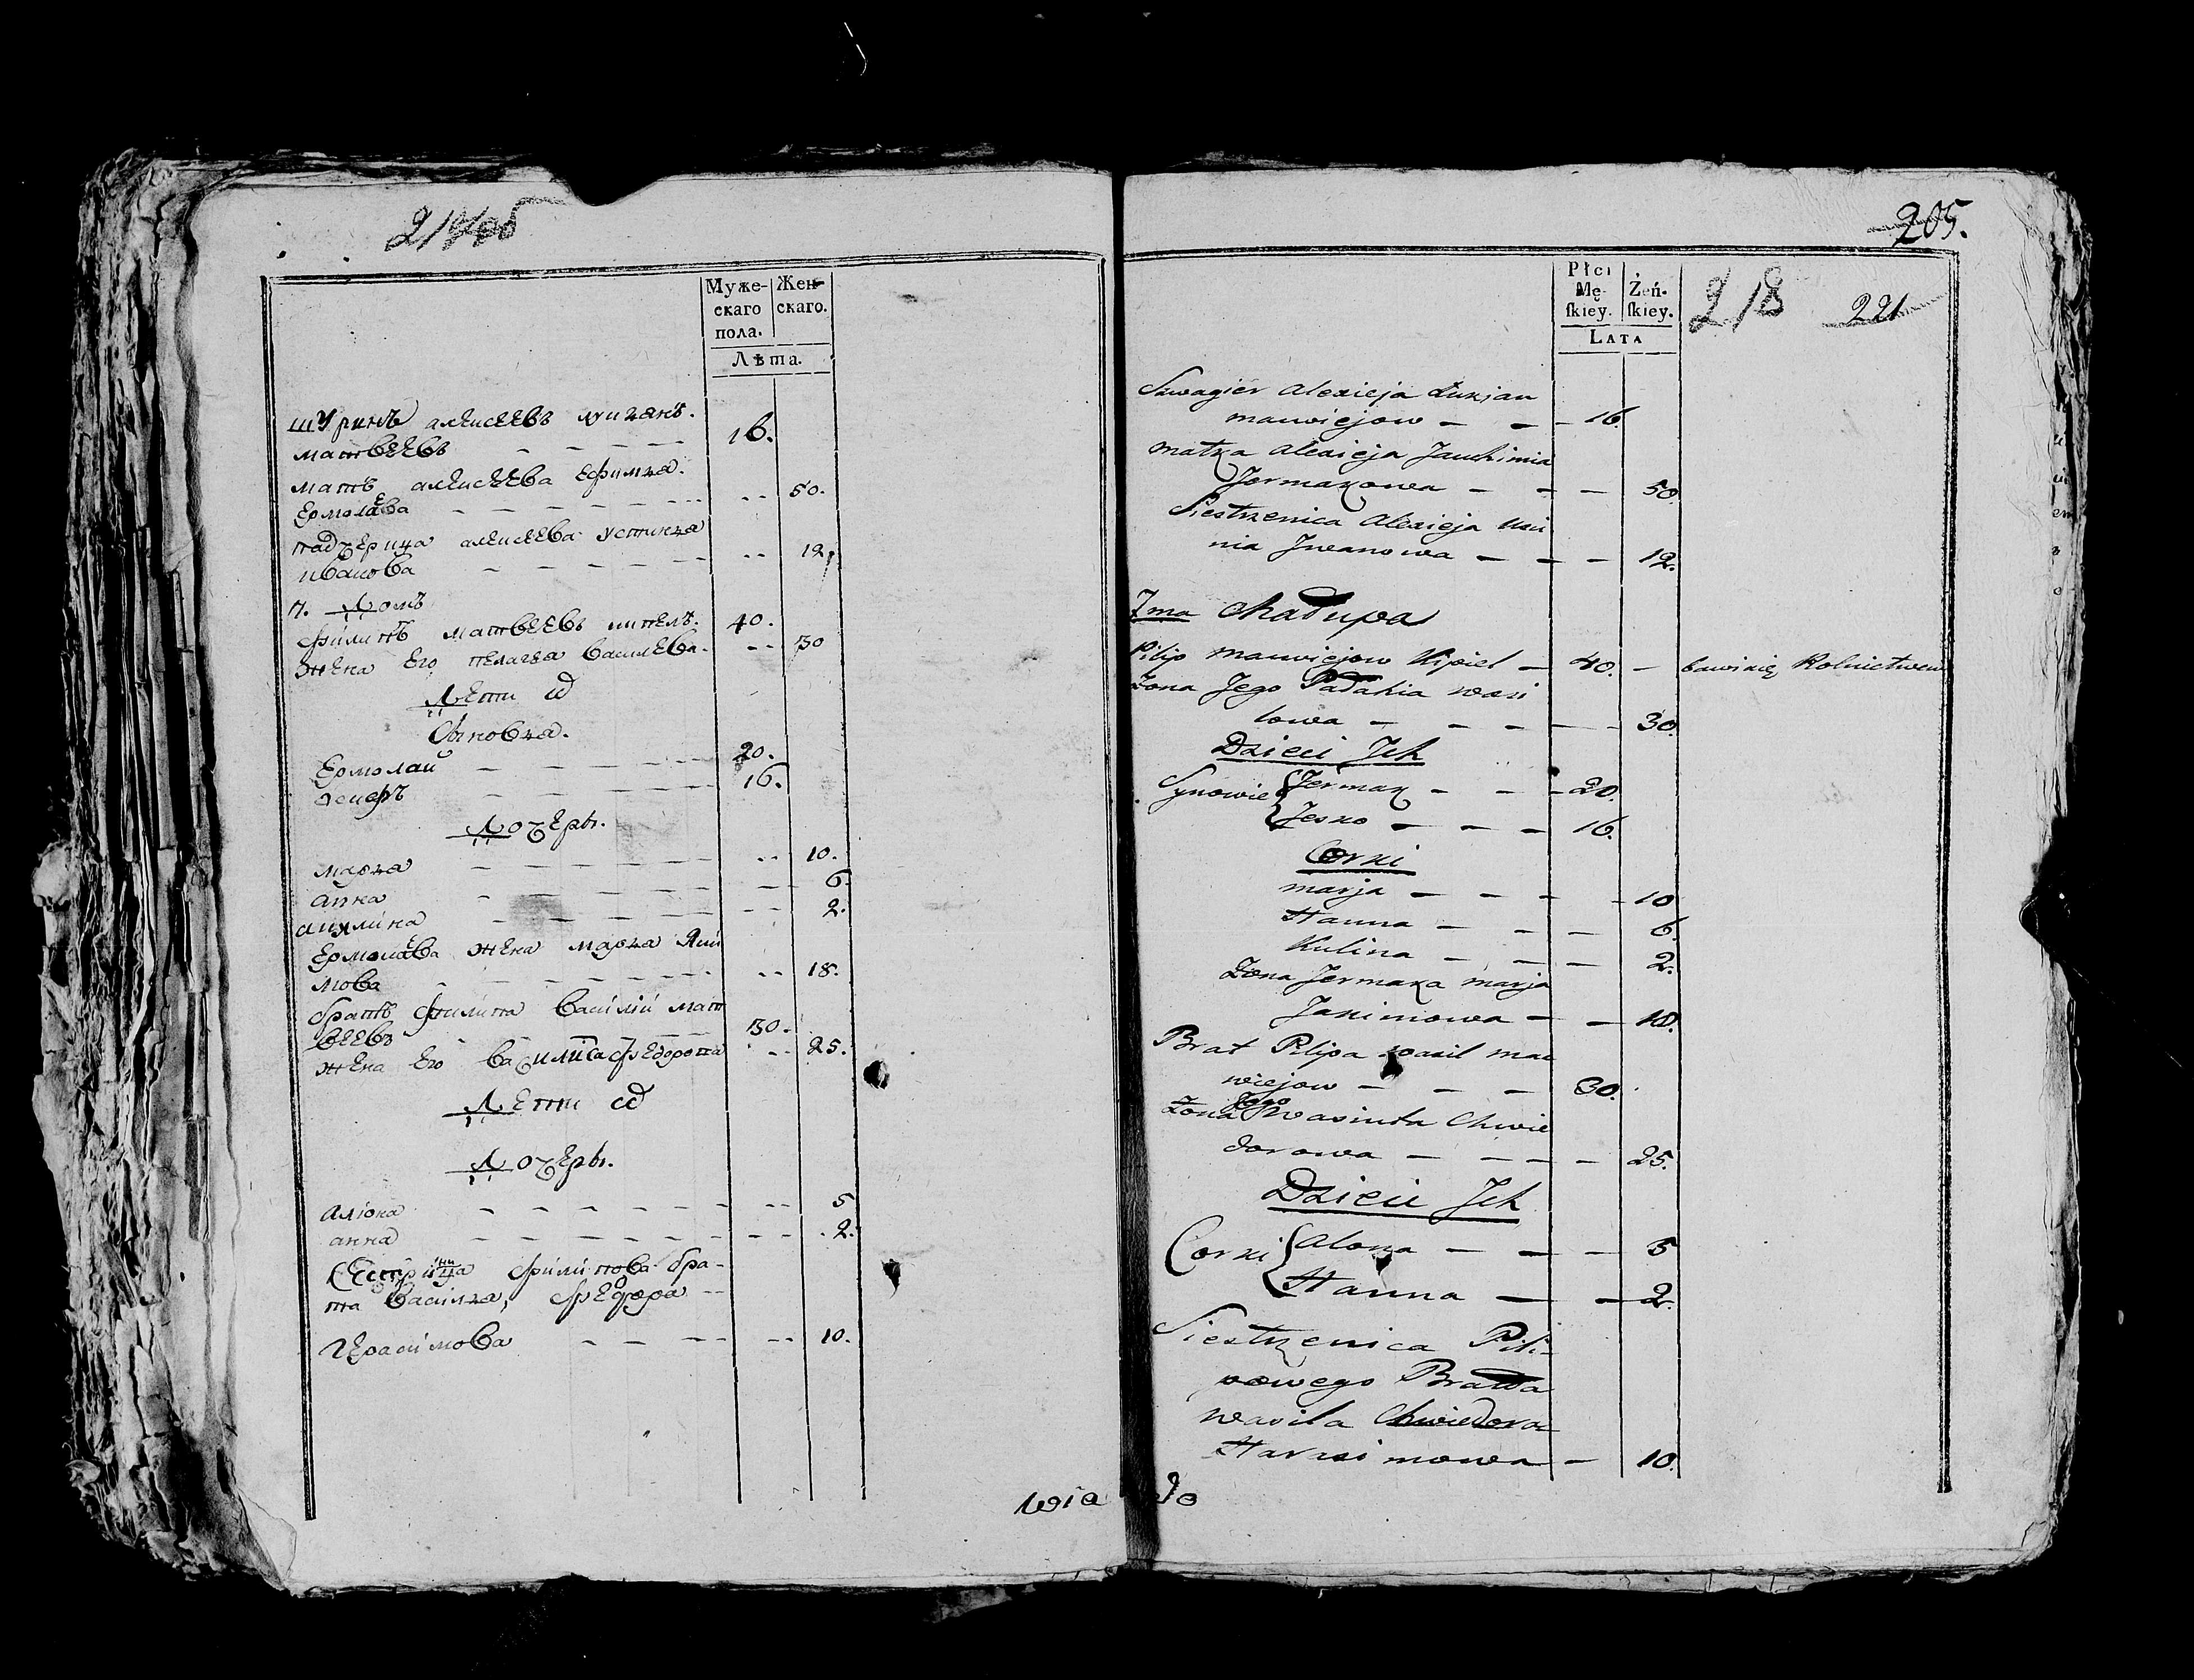 217 об
Муже-
скаго
пола.
Жен-
скаго.
Лѣта.
шуринъ алексеевъ лукьянъ
матвеевъ - - - - 16.
мать алексеева ефимья
Ермолаева - - - - 50.
падчерица алексеева устинья
иванова - - - - 12.
7. Домъ
филипъ матвеевъ кипель. 40.
жена его пелагея василева. - - 30
Дети их
Сыновья.
Ермолай - - - - 20.
осифъ - - - - 16.
Дочеры.
марья - - - - 10.
анна - - - - 6.
акулина - - - - 2.
Ермолаева жена марья Яки
мова - - - - 18.
братъ филипа василий мат
веевъ - - - - 30.
жена его василиса федорова - - 25.
Дети их
Дочеры.
Алiона - - - - 5
анна - - - - 2.
Сестриница филипова бра-
та василья, федора - -
Герасимова - - - - 10.
wia do
205.
Płci
Mę-
ſkiey.
Żeń-
ſkiey.
218 221
LATA
Szwagier Alexieja Łukjan
mawiejow - - - 16.
matka Alexieja Jauchimia
Jermakowa - - - 50.
Siestrzenica Alexieja Usti
nia Jwanowa - - - 12.
7ma Chałupa
Pilip mawiejow Kipiel - 40. - bawi się Rolnictwem
Zona Jego Paładia wasi
lowa - - - - 30.
Dzieci Jch
Synowie { Jermak - - - 20.
Jesko - - - 16.
Corki
marja - - - 10
Hanna - - - 6.
Kulina - - - 2.
Zona Jermaka marja
Jakimowa - - 18.
Brat Pilipa wasil ma
wiejow - - - 30.
Zona Jego Wasiuta Chwie
dorowa - - - - 25.
Dzieci Jch
Corki { Alona - - - 5
Hanna - - 2.
Siestrzenica Pili-
powego Brata
wasila Chwiedora
Harasimowa - 10.